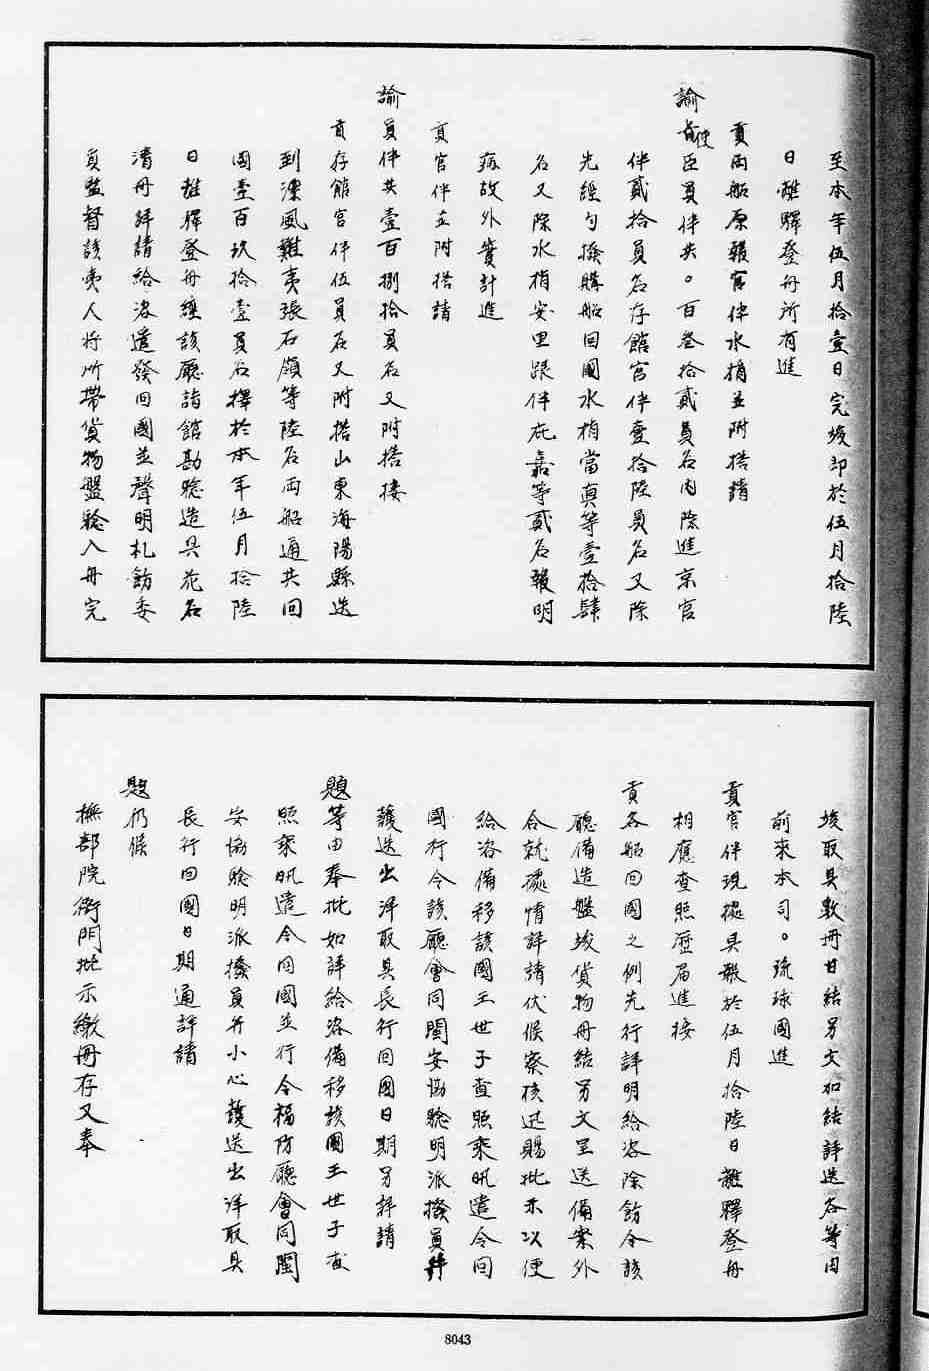 至本年伍月拾壹日完竣即於伍月拾陸
日離驛登舟所有進
貢兩船原報官伴水梢並附搭請
諭貢使臣員伴共。百叁拾貳員名內除進京官
伴貳拾員名存館官伴壹拾陸員名又除
先經勻撥購船回國水梢當真等壹拾肆
名又除水梢安里跟伴庇嘉等貳名報明
病故外實計進
貢官伴並附搭請
諭員伴共壹百捌拾員名又附搭接
貢存館官伴伍員名又附搭山東海陽縣送
到漂風難夷張石嶺等陸名兩船通共回
國壹百玖拾壹員名擇於本年伍月拾陸
日離驛登舟經該廳詣館勘驗造具花名
清冊詳請給咨遣發回國並聲明札飭委
員監督該夷人將所帶貨物盤驗入舟完
竣取具數冊甘結另文加結詳送各等由
前來本司。琉球國進
貢官伴現據具報於伍月拾陸日離驛登舟
相應查照歷屆進接
貢各船回國之例先行詳明給咨除飭令該
廳備造盤竣貨物冊結另文呈送備案外
合就據情詳請伏候察核迅賜批示以便
給咨備移該國王世子查照乘帆遣令回
國行令該廳會同閩安協驗明派撥員弁
護送出洋取具長行回國日期另詳請
題等由奉批如詳給咨備移該國王世子查
照乘帆遣令回國並行令福防廳會同閩
安協驗明派撥員弁小心護送出洋取具
長行回國日期通詳請
題仍候
撫部院衙門批示繳冊存又奉
8043